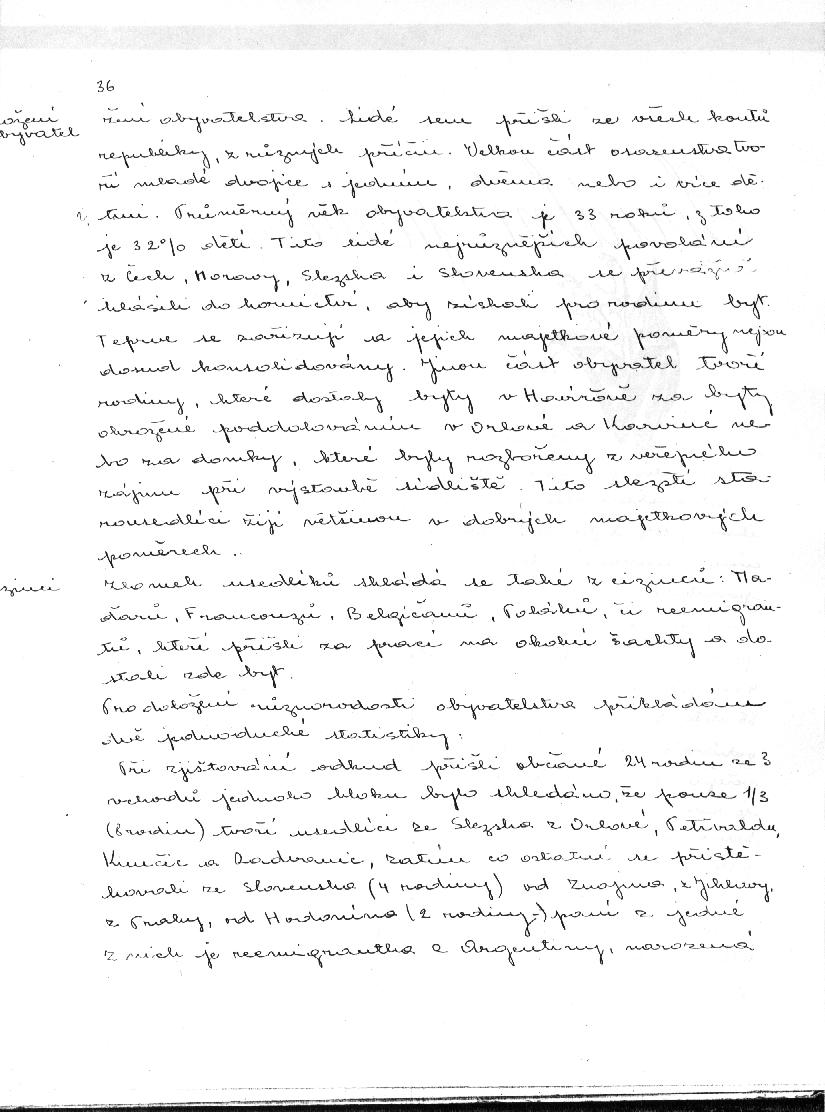 36
ožení
byvatel
žení obyvatelstva. Lidé sem přišli ze všech koutů
republiky, z různých příčin. Velkou část osazenstva tvo-
ří mladé dvojice s jedním, dvěma nebo i více dě-
tmi. Průměrný věk obyvatelstva je 33 roků, z toho
je 32% dětí. Tito lidé nejrůznějších povolání
z Čech, Moravy, Slezska i Slovenska se převážně
hlásili do hornictví, aby získali pro rodinu byt.
Teprve se zařizují a jejich majetkové poměry nejsou
dosud konsolidovány. Jinou část obyvatel tvoří
rodiny, které dostaly byty v Havířově za byty
ohrožené poddolováním v Orlové a Karviné ne-
bo za domky, které byly rozbořeny z veřejného
zájmu při výstavbě sídliště. Tito slezští sta-
rousedlíci žijí většinou v dobrých majetkových
poměrech.
zinci
Zlomek usedlíků skládá se také z cizinců: Ma-
ďarů, Francouzů, Belgičanů, Poláků, či reemigran-
tů, kteří přišli za prací na okolní šachty a do-
stali zde byt.
Pro doložení různorodosti obyvatelstva přikládám
dvě jednoduché statistiky.
Při zjišťování odkud přišli občané 24 rodin ze 3
vchodů jednoho bloku bylo shledáno, že pouze 1/3
(8 rodin) tvoří usedlíci ze Slezska z Orlové, Petřvaldu,
Kunčic a Radvanic, zatím co ostatní se přistě-
hovali ze Slovenska (4 rodiny) od Znojma, z Jihlavy,
z Prahy, od Hodonína (2 rodiny-) paní z jedné
z nich je reemigrantka z Argentiny, narozená